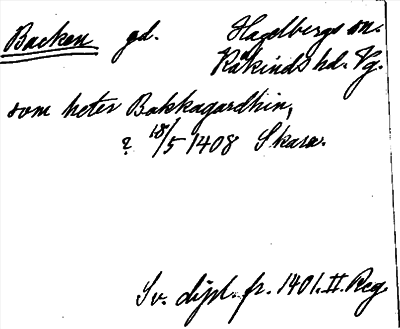 Backen gd. Hagelbergs sn.
Kåkinds hd. Vg.
som heter Bakkagardhin,
? 18/5 1408 Skara.
Sv. dipl. fr. 1401. II. Reg.